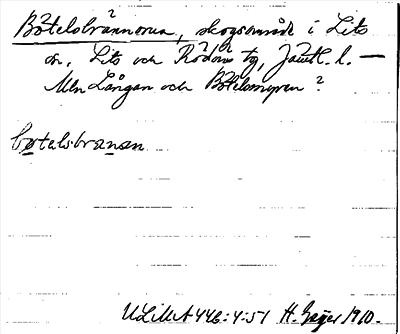 Botelsbrännorna, skogsområde i Lits
sn, Lits och Rödöns tg, Jämtl. l. —
Mln Långan och Botelsmyren?
botelsbranan
ULMA 446:4:51 H. Geijer 1910.